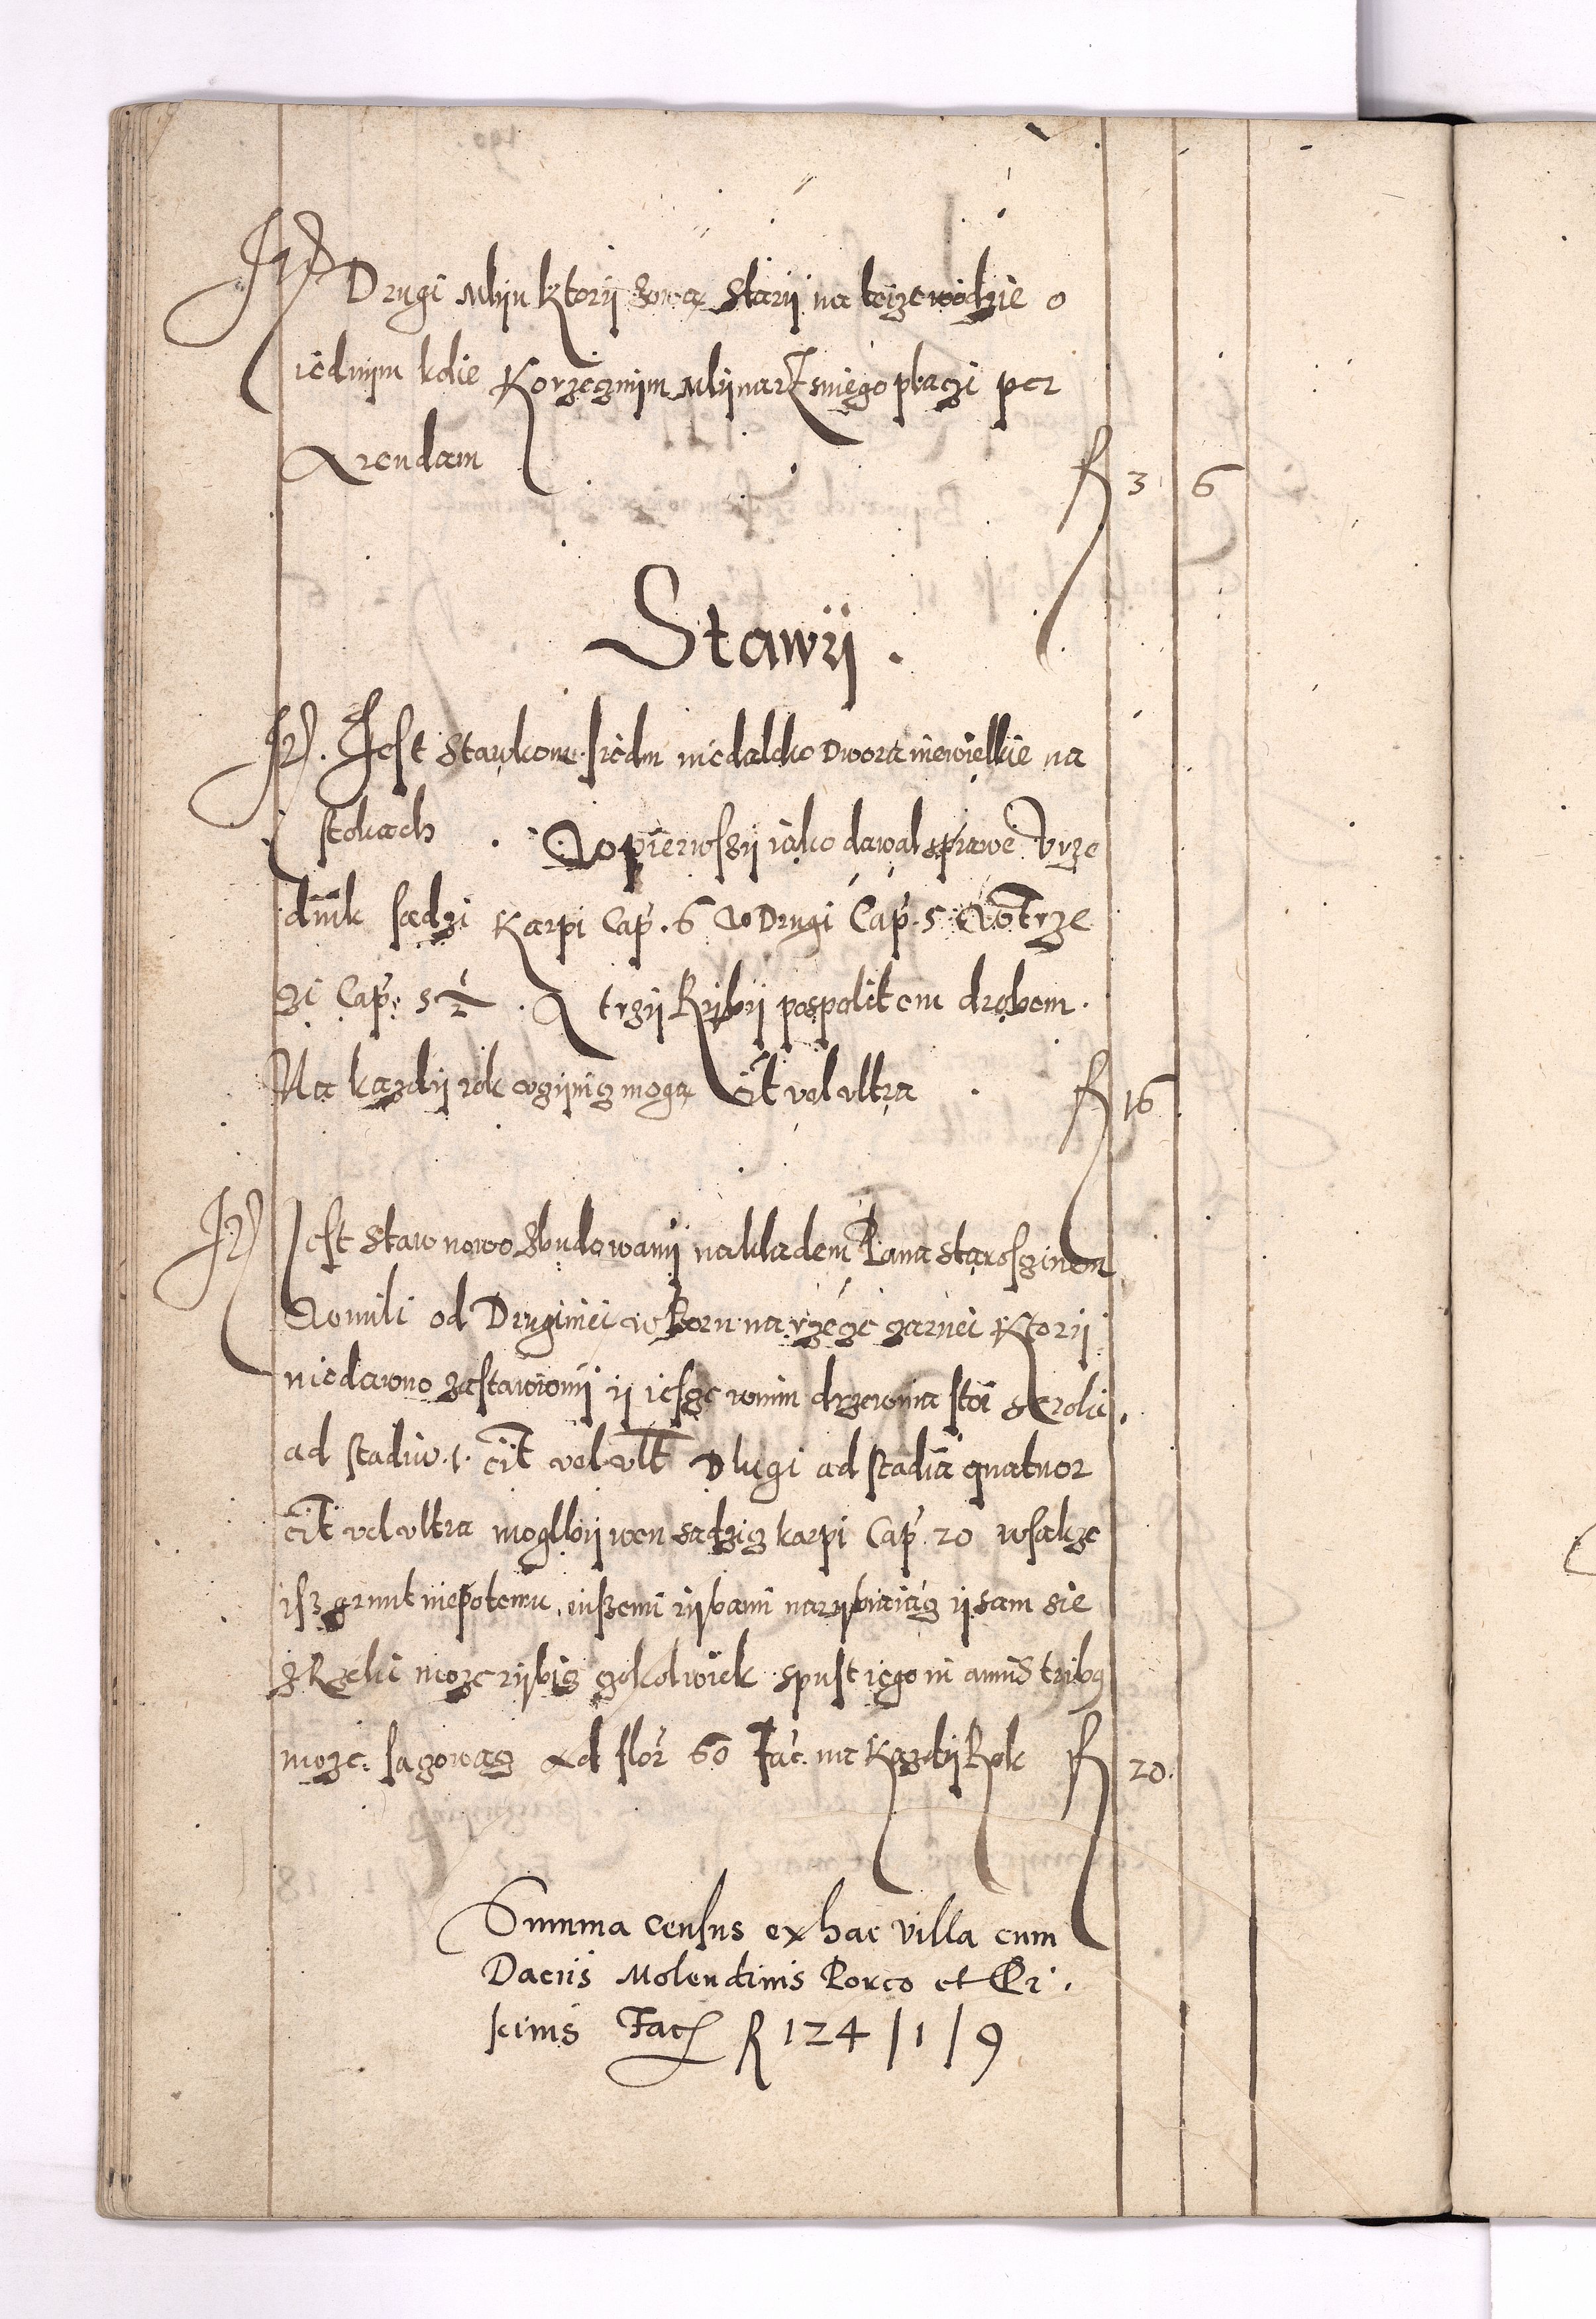 It Drugi Mlijn ktorij zową Starij na teijze wodzie o
iednym kolie Korzecznim Mlijnarz sniego placzi per
Arendam R 3 6
Stawij.
It. Jest Stawkow siedm niedaleko Dwora niewielkie na
stokach . W pierwszij iako dawal sprawe Vrze
dnik sadzi Karpi Cap. 6 W Drugi Cap. 5 W Trze
zi Cap. 5 1/2 . A trzij Rijbij pospolitem drobem.
Na kazdij rok czijnicz mogą cit vel vltra . R 16
It Jest Staw nowo Zbudowanij nakladem Pana Starosczinem
W mili od Druginiei w Boru na rzecze czarnei Ktorij
niedawno zastawionij ij iescze wnim drzewina stoi Seroki.
ad stadiu. 1. cit vel vlt Dlugi ad stadia quatuor
cit vel vltra moglbij wen sadzicz karpi Cap 20 wsakze
isz grunt niepotemu inszemi rijbami narijbiaiącz ij sam sie
z Rzeki moze rijbicz czokolwiek spust iego in annis tribq
moze. sacowacz Ad flor 60 Fac. na Kazdij Rok R 20.
Summa census ex hac villa cum
Daciis Molendinis Porco et Pi.
scinis Fac R 124 / 1 / 9